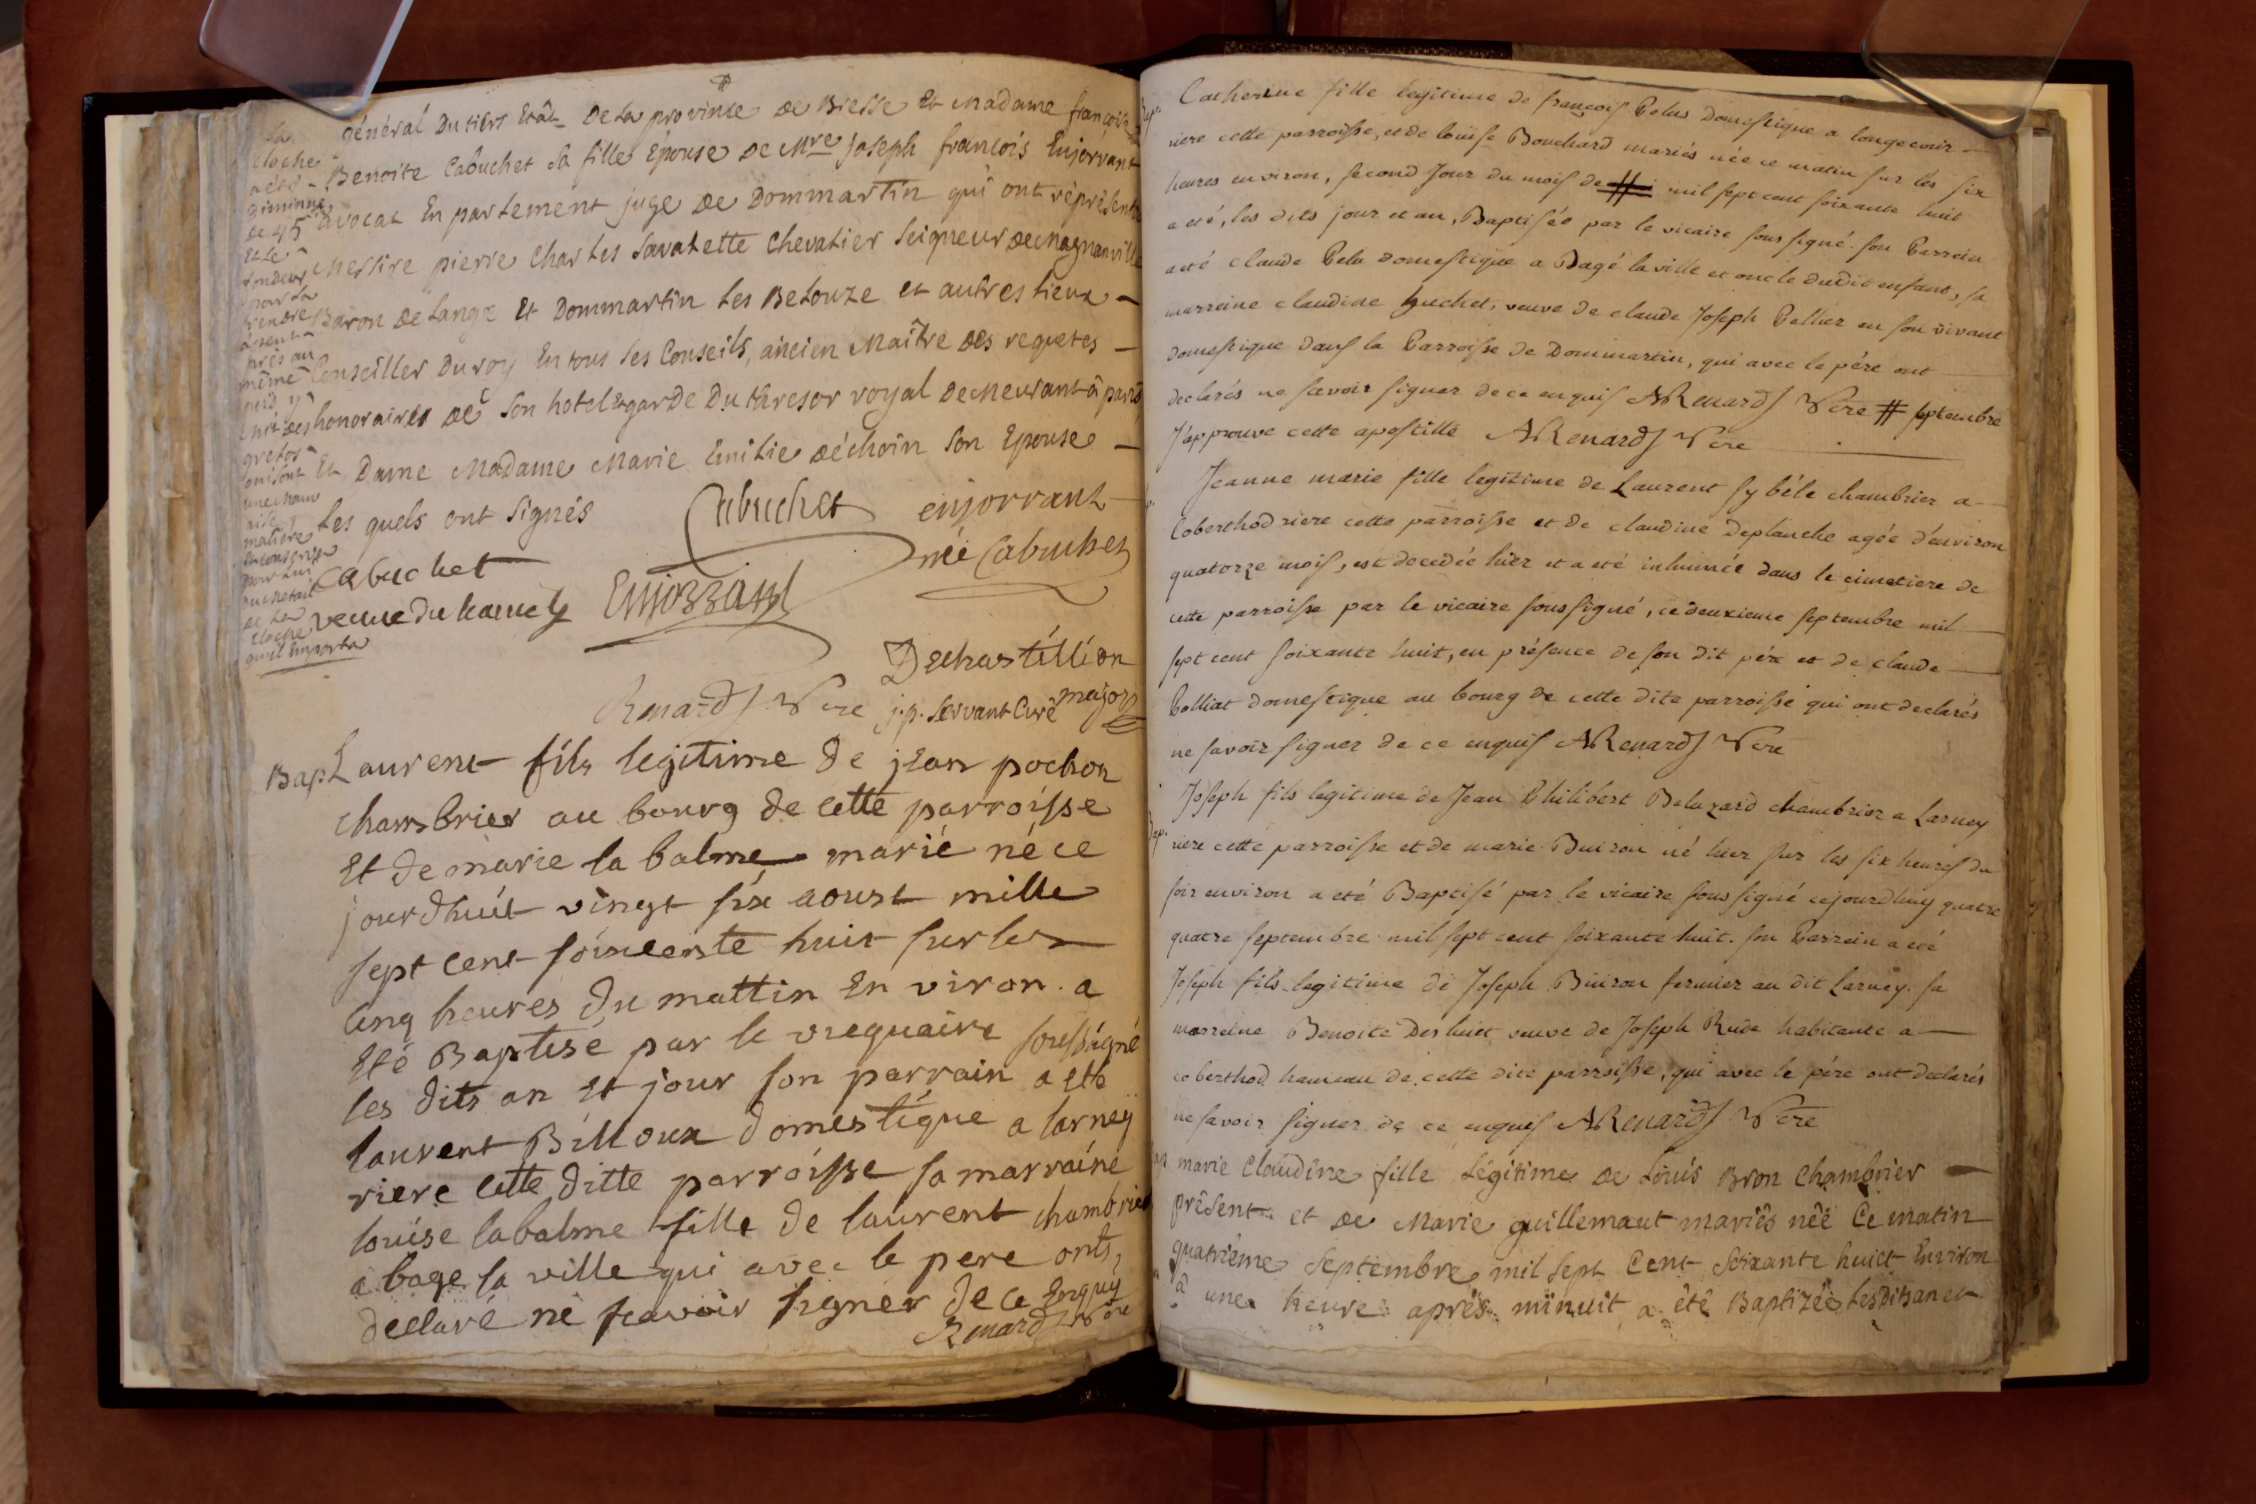 La
cloche
a été
diminué
de 45
et le
fondeur
pour la
prendre
même
poid, y
grelos
qui sont
une mau
matiere
pour lui
de la
cloche
qu'il emporta
général du tiers Etât De la province de Bresse Et Madame françoise
Benoite Cabuchet sa fille Epouse De Mre Joseph françois Enjorrant
avocat En parlement juge De Dommartin qui ont réprésenté
Messire pierre Charles Savalette Chevalier Seigneur de magnanville
Baron De Lange Et Dommartin Les Belouze et autres lieux
Conseiller Du roy En tous ses Conseils, ancien Maître Des requetes
honoraires De son hotel & garde Du thresor royal Demeurant à paris
Et Dame Madame Marie Emilie déchoin son Epouse
Les quels ont signés
Cabuchet enjorrant
née Cabuchet
Cabuchet
veuve du hamel Enjorrant
Dechastillion
major
Renard Vcre j.p. servant Curé
Bap Laurent fils legitime de jean pochon
chambrier au bourg de cette parroisse
Et de marie la balme marié né ce
jourdhuit vingt six aoust mille
sept cent soixcente huit sur les
cinq heures du mattin En viron a
Eté Baptisé par le viequaire soussigné
les dits an Et jour son parrain a eté
laurent Billoux domestique a larney
riere cette ditte parroisse sa marraine
louise labalme fille de laurent chambrier
a bage la ville qui avec le pere onts
declaré ne scavoir signer de ce Enquy
Renard Vcre
Catherine fille legitime de françois Pelus Domestique a longecour
riere cette parroisse, et de louise Bouchard mariés née ce matin sur les six
heures environ, second Jour du mois de # mil sept cent soixante huit
a eté, les dits jour et an, Baptisée par le vicaire soussigné. son Parrein
a eté claude Pelu domestique a Bagé la ville et oncle dudit enfant, sa
marreine claudine huchet, veuve de claude Joseph Pellier en son vivant
domestique dans la Parroisse de Dommartin, qui avec le pére ont
declarés ne scavoir signer de ce enquis ARenard Vcre # septembre
J'approuve cette apostille ARenard Vcre
Jeanne marie fille legitime de Laurent sybéle chambrier a
Coberthod riere cette parroisse et de claudine Deplanche agée d'environ
quatorze mois, est decedée hier et a eté inhumée dans le cimetiere de
cette parroisse par le vicaire soussigné, ce deuxieme septembre mil
sept cent soixante huit, en présence de son dit pére et de claude
Polliat domestique au bourg de cette dite parroisse qui ont declarés
ne savoir signer de ce enquis ARenard Vcre
Bap. Joseph fils legitime de Jean Philibert Beluzard chambrier a Larney
riere cette parroisse et de marie Buiron né hier sur les six heures du
soir environ a eté Baptisé par le vicaire soussigné cejourdhuy quatre
quatre septembre mil sept cent soixante huit. son Parrein a eté
Joseph fils legitime de Joseph Buiron fermier au dit Larney. sa
marreine Benoite Desluiet veuve de Joseph Rude habitante a
coberthod hameau de cette dite parroisse, qui avec le pére ont declarés
ne savoir signer de ce enquis ARenard Vcre
marie Claudine fille Légitime De Loüis Bron Chambrier
présent et De Marie guillemaut mariés née Ce matin
quatriéme Septembre mil sept Cent Soixante huict Environ
à une heure aprés minuit a été Baptizée Les dits an et